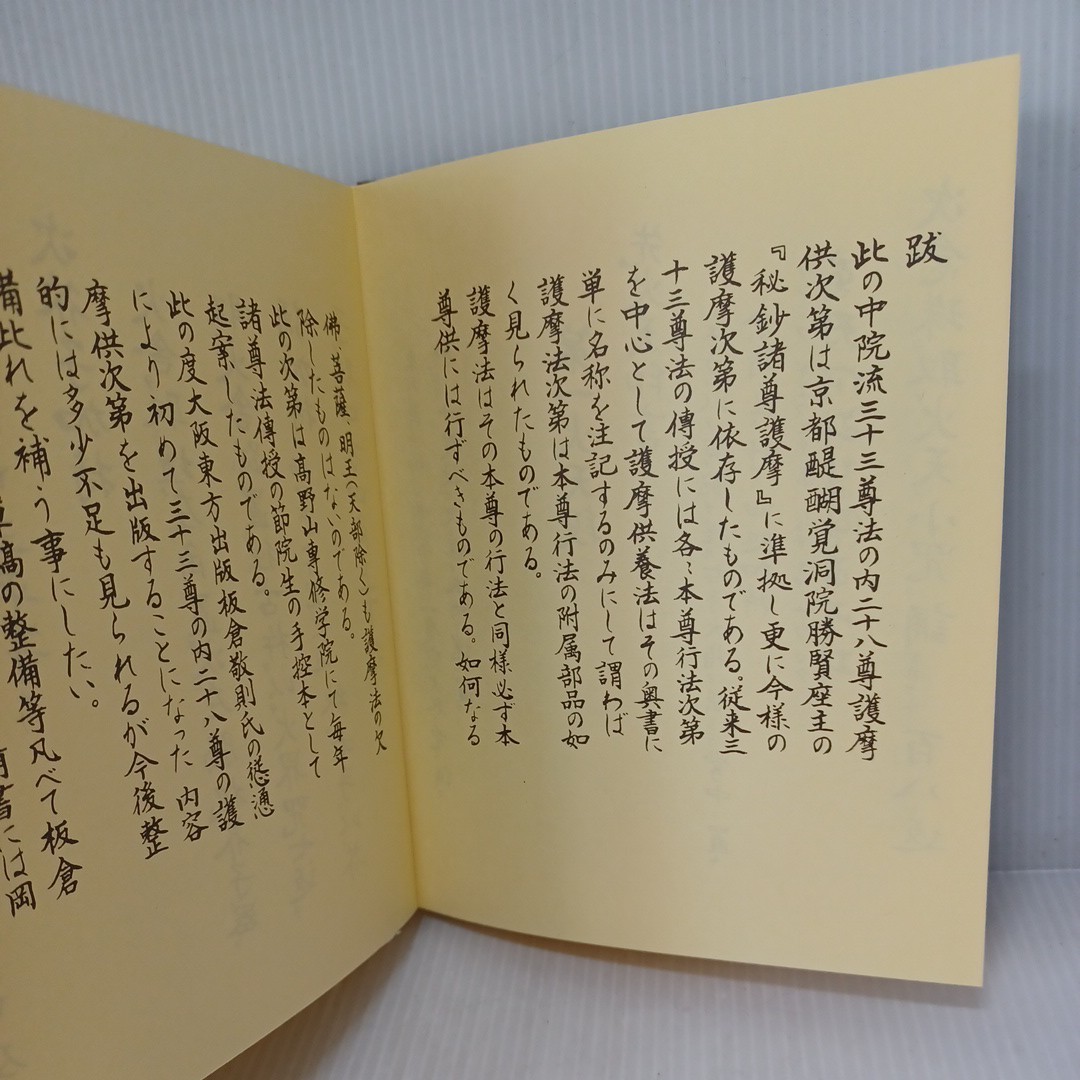 跋
此の中院流三十三尊法の内二十八尊護摩
供次第は京都醍醐覚洞院勝賢座主の
『秘鈔諸尊護摩』に準拠し更に今様の
護摩次第に依存したものである。従来三
十三尊法の傳授には各〻本尊行法次第
を中心として護摩供養法はその奥書に
単に名称を注記するのみにして謂わば
護摩法次第は本尊行法の附属部品の如
く見られたものである。
護摩法はその本尊の行法と同様必ず本
尊供には行ずべきものである。如何なる
佛、菩薩、明王(天部除く)も護摩法の欠
除したものはないのである。
此の次第は高野山専修学院にて毎年
諸尊法傳授の節院生の手控本として
起案したものである。
此の度大阪東方出版板倉敬則氏の慫慂
により初めて三十三尊の内二十八尊の護
摩供次第を出版することになった 内容
的には多少不足も見られるが今後整
備此れを補う事にしたい。
高の整備等凡べて板倉
書には岡